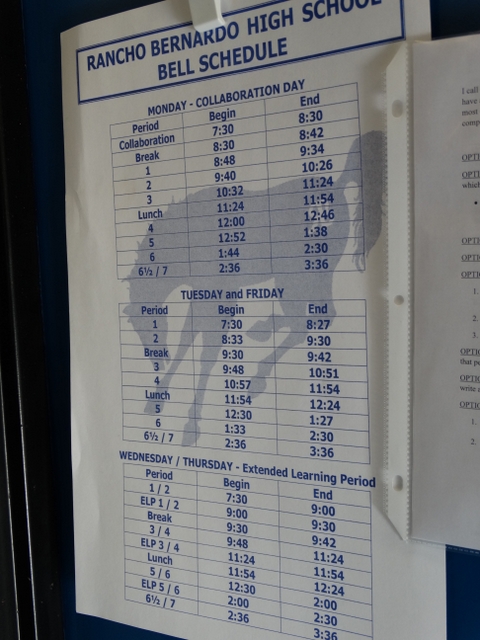 RANCHO BERNARDO HIGH SCHOOL
BELL SCHEDULE
MONDAY - COLLABORATION DAY
Period Begin End
Collaboration 7:30 8:30
Break 8:30 8:42
1 8:48 9:34
2 9:40 10:26
3 10:32 11:24
Lunch 11:24 11:54
4 12:00 12:46
5 12:52 1:38
6 1:44 2:30
6½ / 7 2:36 3:36
TUESDAY and FRIDAY
Period Begin End
1 7:30 8:27
2 8:33 9:30
Break 9:30 9:42
3 9:48 10:51
4 10:57 11:54
Lunch 11:54 12:24
5 12:30 1:27
6 1:33 2:30
6½ / 7 2:36 3:36
WEDNESDAY / THURSDAY - Extended Learning Period
Period Begin End
1 / 2 7:30 9:00
ELP 1 / 2 9:00 9:30
Break 9:30 9:42
3 / 4 9:48 11:24
ELP 3 / 4 11:24 11:54
Lunch 11:54 12:24
5 / 6 12:30 2:00
ELP 5 / 6 2:00 2:30
6½ / 7 2:36 3:36
I call
have
most